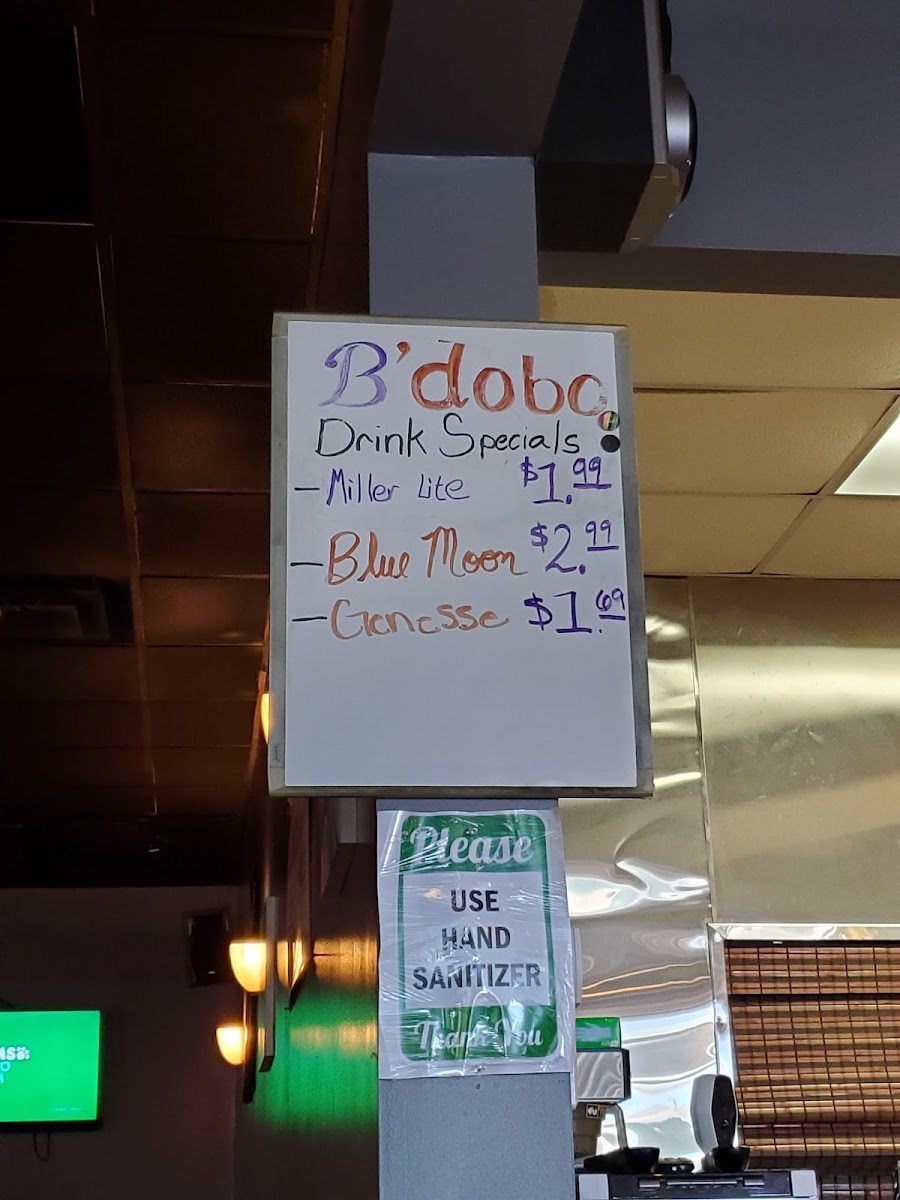 B'dobo
Drink Specials
- Miller Lite $1.99
- Blue Moon $2.99
- Genesse $1.69
Please
USE
HAND
SANITIZER
Thank You